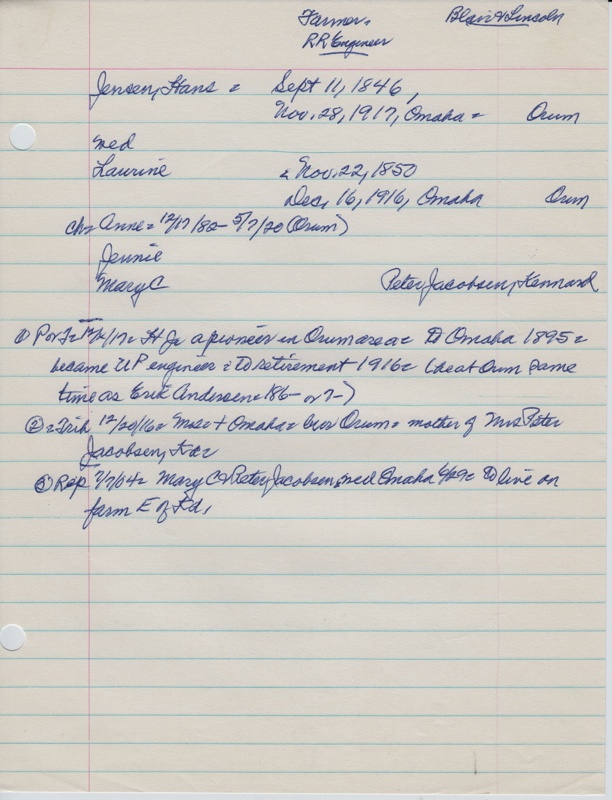 Farmer,
RR Engineer
Blair & Lincoln
Jensen, Hans = Sept 11, 1846,
Nov. 28, 1917, Omaha = Orum
wed
Laurine = Nov. 22, 1850
Dec. 16, 1916, Omaha Orum
ch = Anne = 12/17/82 - 5/7/20 (Orum)
Jennie
Mary C Peter Jacobsen, Kennard
① = HJ = a pioneer in Orum area = To Omaha 1895 =
became UP engineer = To retirement 1916 = (he at Orum same
time as Erik Andersen = 186- or 7-)
② = 12/20/16 = + Omaha = Orum = mother of Mrs Peter
Jacobsen, Kd =
③ Rep 7/7/04 = Mary C & Peter Jacobsen, wed Omaha 6/29 = To live on
farm E of Kd,